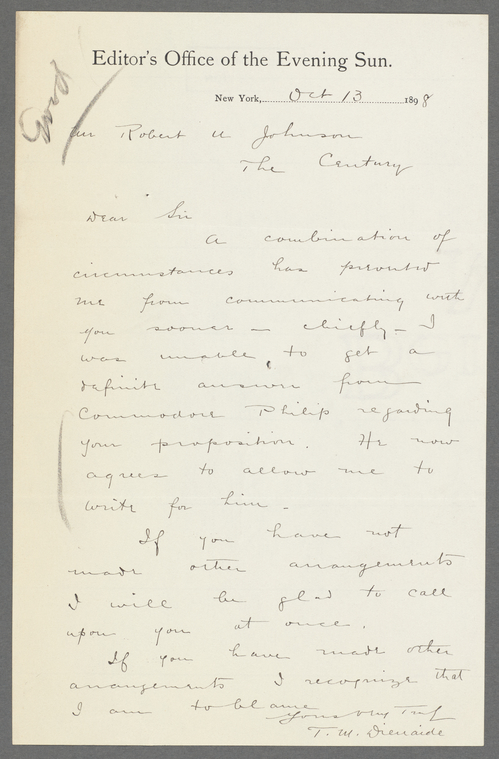 Editor's Office of the Evening Sun.
Good
New York, Oct 13 1898
Mr Robert U Johnson
The Century
Dear Sir
A combination of
circumstances has prevented
me from communicating with
you sooner — chiefly — I
was unable, to get a
definite answer from
Commodore Philip regarding
your proposition. He now
agrees to allow me to
write for him.
If you have not
made other arrangements
I will be glad to call
upon you at once.
If you have made other
arrangements I recognize that
I am to blame
Yours Very
T. M. Dienaide